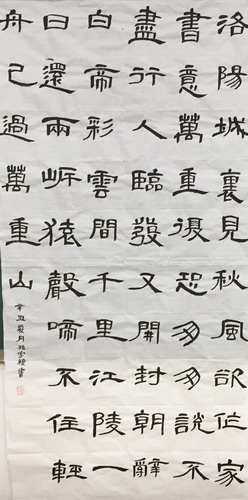 洛陽城裏見秋風欲作家
書意萬重復恐匆匆說不
盡行人臨發又開封朝辭
白帝彩雲間千里江陵一
日還兩岸猿聲啼不住輕
舟已過萬重山
辛丑夏月書